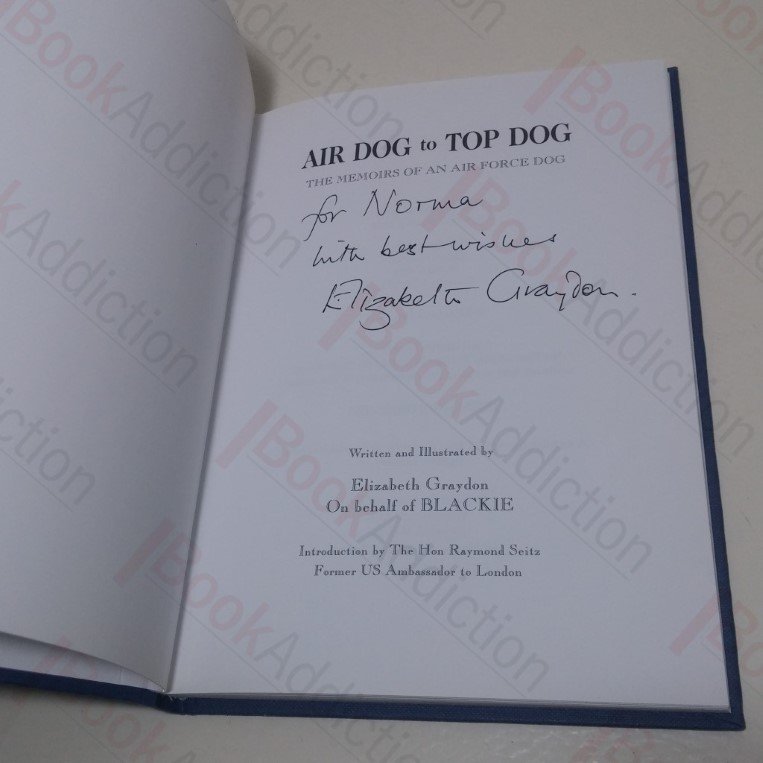 AIR DOG to TOP DOG
THE MEMOIRS OF AN AIR FORCE DOG
for Norma
with best wishes
Elizabeth Graydon.
Written and Illustrated by
Elizabeth Graydon
On behalf of BLACKIE
Introduction by The Hon Raymond Seitz
Former US Ambassador to London
BookAddiction
BookAddiction
BookAddiction
BookAddiction
BookAddiction
BookAddiction
BookAddiction